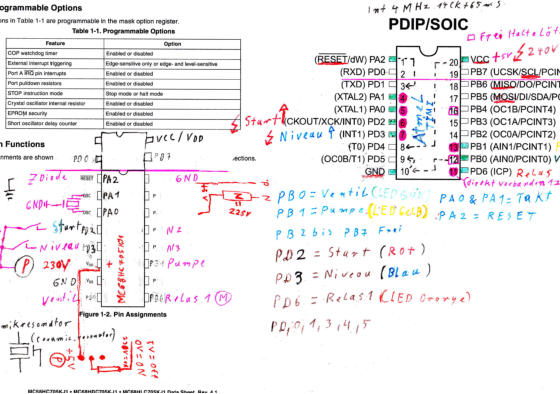 ogrammable Options
ons in Table 1-1 are programmable in the mask option register.
Table 1-1. Programmable Options
Feature Option
COP watchdog timer Enabled or disabled
External interrupt triggering Edge-sensitive only or edge- and level-sensitive
Port A IRQ pin interrupts Enabled or disabled
Port pulldown resistors Enabled or disabled
STOP instruction mode Stop mode or halt mode
Crystal oscillator internal resistor Enabled or disabled
EPROM security Enabled or disabled
Short oscillator delay counter Enabled or disabled
n Functions
nments are shown
ections.
VCC / VDD
PD0
PB7
Start
Niveau
ZDiode RESET PA2 GND
GND PA1
PA0
Start PD2 N2
Niveau PD3 N3
P 230V + PB1 Pumpe
GND
Ventil PB0 PD6 Relas 1 M
MC68HC705J1
225V
Figure 1-2. Pin Assignments
(ceramic resonator)
P +5V
MC68HC705KJ1 • MC68HRC705KJ1 • MC68HLC705KJ1 Data Sheet, Rev. 4.1
Int 4 MHz 14CK+65ms
PDIP/SOIC
(RESET/dW) PA2 1 20 VCC +5V 240V
(RXD) PD0 2 19 PB7 (UCSK/SCL/PCIN
(TXD) PD1 3 18 PB6 (MISO/DO/PCINT
(XTAL2) PA1 4 17 PB5 (MOSI/DI/SDA/PC
(XTAL1) PA0 5 16 PB4 (OC1B/PCINT4)
(CKOUT/XCK/INT0) PD2 6 15 PB3 (OC1A/PCINT3)
(INT1) PD3 7 14 PB2 (OC0A/PCINT2)
(T0) PD4 8 13 PB1 (AIN1/PCINT1)
(OC0B/T1) PD5 9 12 PB0 (AIN0/PCINT0)
GND 10 11 PD6 (ICP) Relas
Atmel
PB0 = Ventil (LED Grün)
PA0 & PA1 = Takt
PB1 = Pumpe (LED Gelb)
PA2 = RESET
PB2 bis PB7 Frei
PD2 = Start (Rot)
PD3 = Niveau (Blau)
PD6 = Relas1 (LED Orange)
PD,0,1,3,4,,5